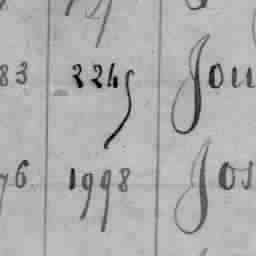 83 2245 Jou
76 1998 Jos